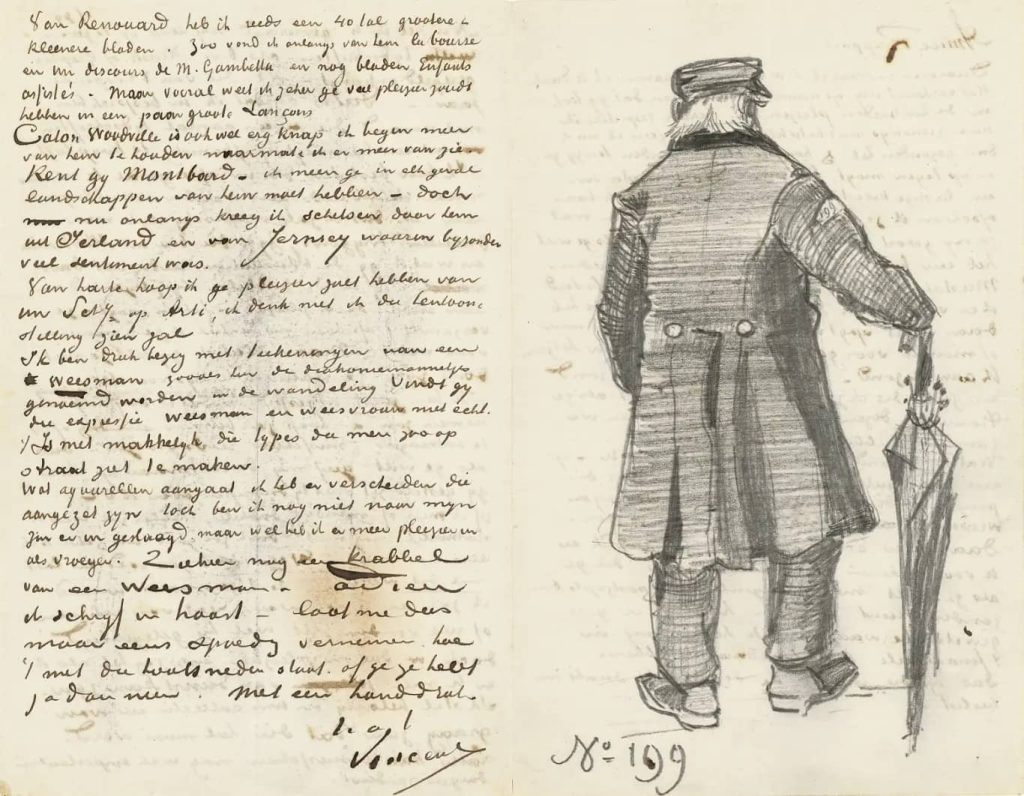 Van Renouard heb ik reeds een 40 tal grootere &
kleenere bladen. Zoo vond ik onlangs van hem la bourse
en un discours de M. Gambetta en nog bladen Enfants
assistés. Maar vooral weet ik zeker ge veel pleizier zoudt
hebben in een paar groote Lançons
Caton Woodville is ook wel erg knap ik begin meer
van hem te houden naarmate ik er meer van zie.
Kent gy Montbard – ik meen ge in elk geval
landschappen van hem moet hebben – doch
nu onlangs kreeg ik schetsen door hem
uit Ierland en van Jersey waarin byzonder
veel sentiment was.
Van harte hoop ik ge pleizier zult hebben van
uw op Arti, ik denk niet ik die tentoon-
stelling zien zal
Ik ben druk bezig met teekeningen van een
weesman zooals hier de diakoniemannetjes
genoemd worden in de wandeling Vindt gy
die expressie weesman en weesvrouw niet echt.
't Is niet makkelyk die types die men zoo op
straat ziet te maken.
Wat aquarellen aangaat ik heb er verscheiden die
aangezet zyn toch ben ik nog niet naar myn
zin er in geslaagd. maar wel heb ik er meer pleizier in
als vroeger. Ziehier nog een krabbel
van een Weesman – adieu
ik schryf in haast – laat me dus
maar eens spoedig vernemen hoe
't met die houtsneden staat. of ge ze hebt
ja dan neen. Met een handdruk.
t. à t.
Vincent
No. 199